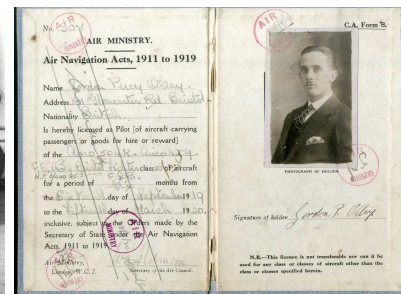 No. 307
AIR MINISTRY.
Air Navigation Acts, 1911 to 1919
Name Gordon Percy Olley
Address Gloucester Rd. Bristol
Nationality British
Is hereby licensed as Pilot [of aircraft carrying
passenger or goods for hire or reward]
of the class of aircraft
for a period of months from
the day of September 1919
to the day of March 1920
inclusive, subject to the Orders made by the
Secretary of State under the Air Navigation
Acts, 1911 to 1919.
Air Ministry,
London, W.C. 2.
Secretary of the Air Council.
AIR MINISTRY
C.A. Form B.
AIR
PHOTOGRAPH OF HOLDER.
Signature of holder Gordon P. Olley
N.B.—This licence is not transferable nor can it be
used for any class or classes of aircraft other than the
class or classes specified herein.